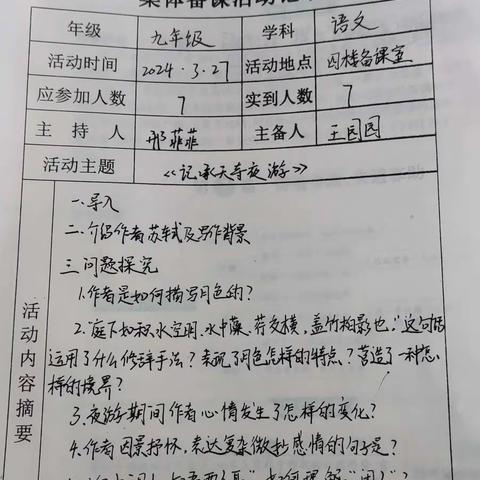 集体备课活动记
年级 九年级 学科 语文
活动时间 2024.3.27 活动地点 四楼备课室
应参加人数 7 实到人数 7
主持人 邢菲菲 主备人 王园园
活动主题 《记承天寺夜游》
活动内容摘要
一.导入
二.介绍作者苏轼及写作背景
三.问题探究
1.作者是如何描写月色的?
2.“庭下如积水空明,水中藻、荇交横,盖竹柏影也。”这句话
运用了什么修辞手法?表现了月色怎样的特点?营造了一种怎
样的境界?
3.夜游期间作者心情发生了怎样的变化?
4.作者因景抒怀,表达复杂微妙感情的句子是?